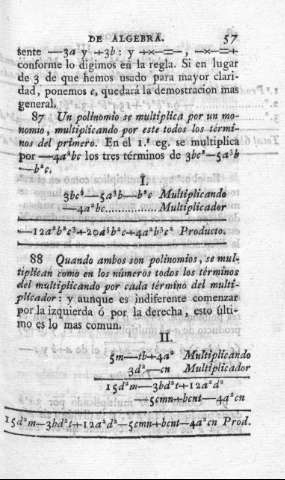 DE ALGEBRA. 57
tente —3a y +3b: y +×—=—, —×—=+
conforme lo digimos en la regla. Si en lugar
de 3 de que hemos usado para mayor clari-
dad, ponemos c, quedará la demostracion mas
general.
87 Un polinomio se multiplica por un mo-
nomio, multiplicando por este todos los térmi-
nos del primero. En el 1.º eg. se multiplica
por —4a²bc los tres términos de 3bc²—5a³b
—b²c,
I.
3bc²—5a³b—b²c Multiplicando
—4a²bc............... Multiplicador
—12a²b²c³+20a⁵b²c+4a²b³c² Producto.
88 Quando ambos son polinomios, se mul-
tiplican como en los números todos los términos
del multiplicando por cada término del multi-
plicador: y aunque es indiferente comenzar
por la izquierda ó por la derecha, esto últi-
mo es lo mas comun.
II.
5m—tb+4a² Multiplicando
3d²—cn Multiplicador
15d²m—3bd²t+12a²d²
—5cmn+bcnt—4a²cn
15d²m—3bd²t+12a²d²—5cmn+bcnt—4a²cn Prod.